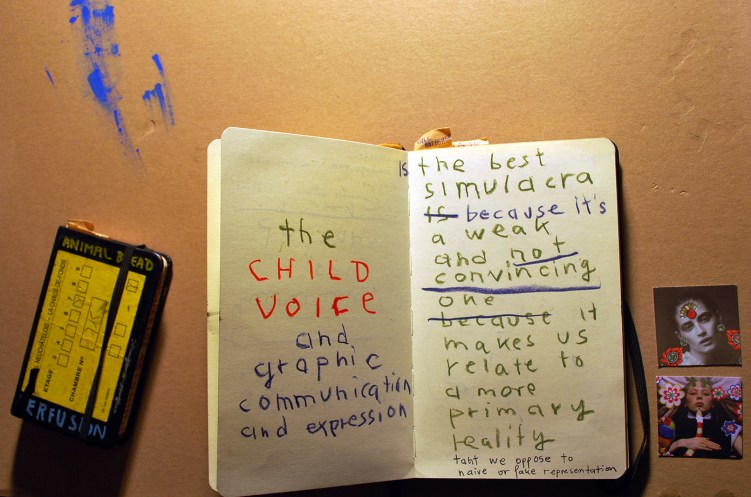 the
CHILD
VOICE
and
graphic
communication
and expression
is
the best
simulacra
is because it's
a weak
and not
convincing
one
because it
makes us
relate to
a more
primary
reality
taht we oppose to
naive or fake representation
ANIMAL
NEUCHÂTELOIS – LA CHAUX-DE-FONDS
ETAGE
CHAMBRE No
ERFUSION